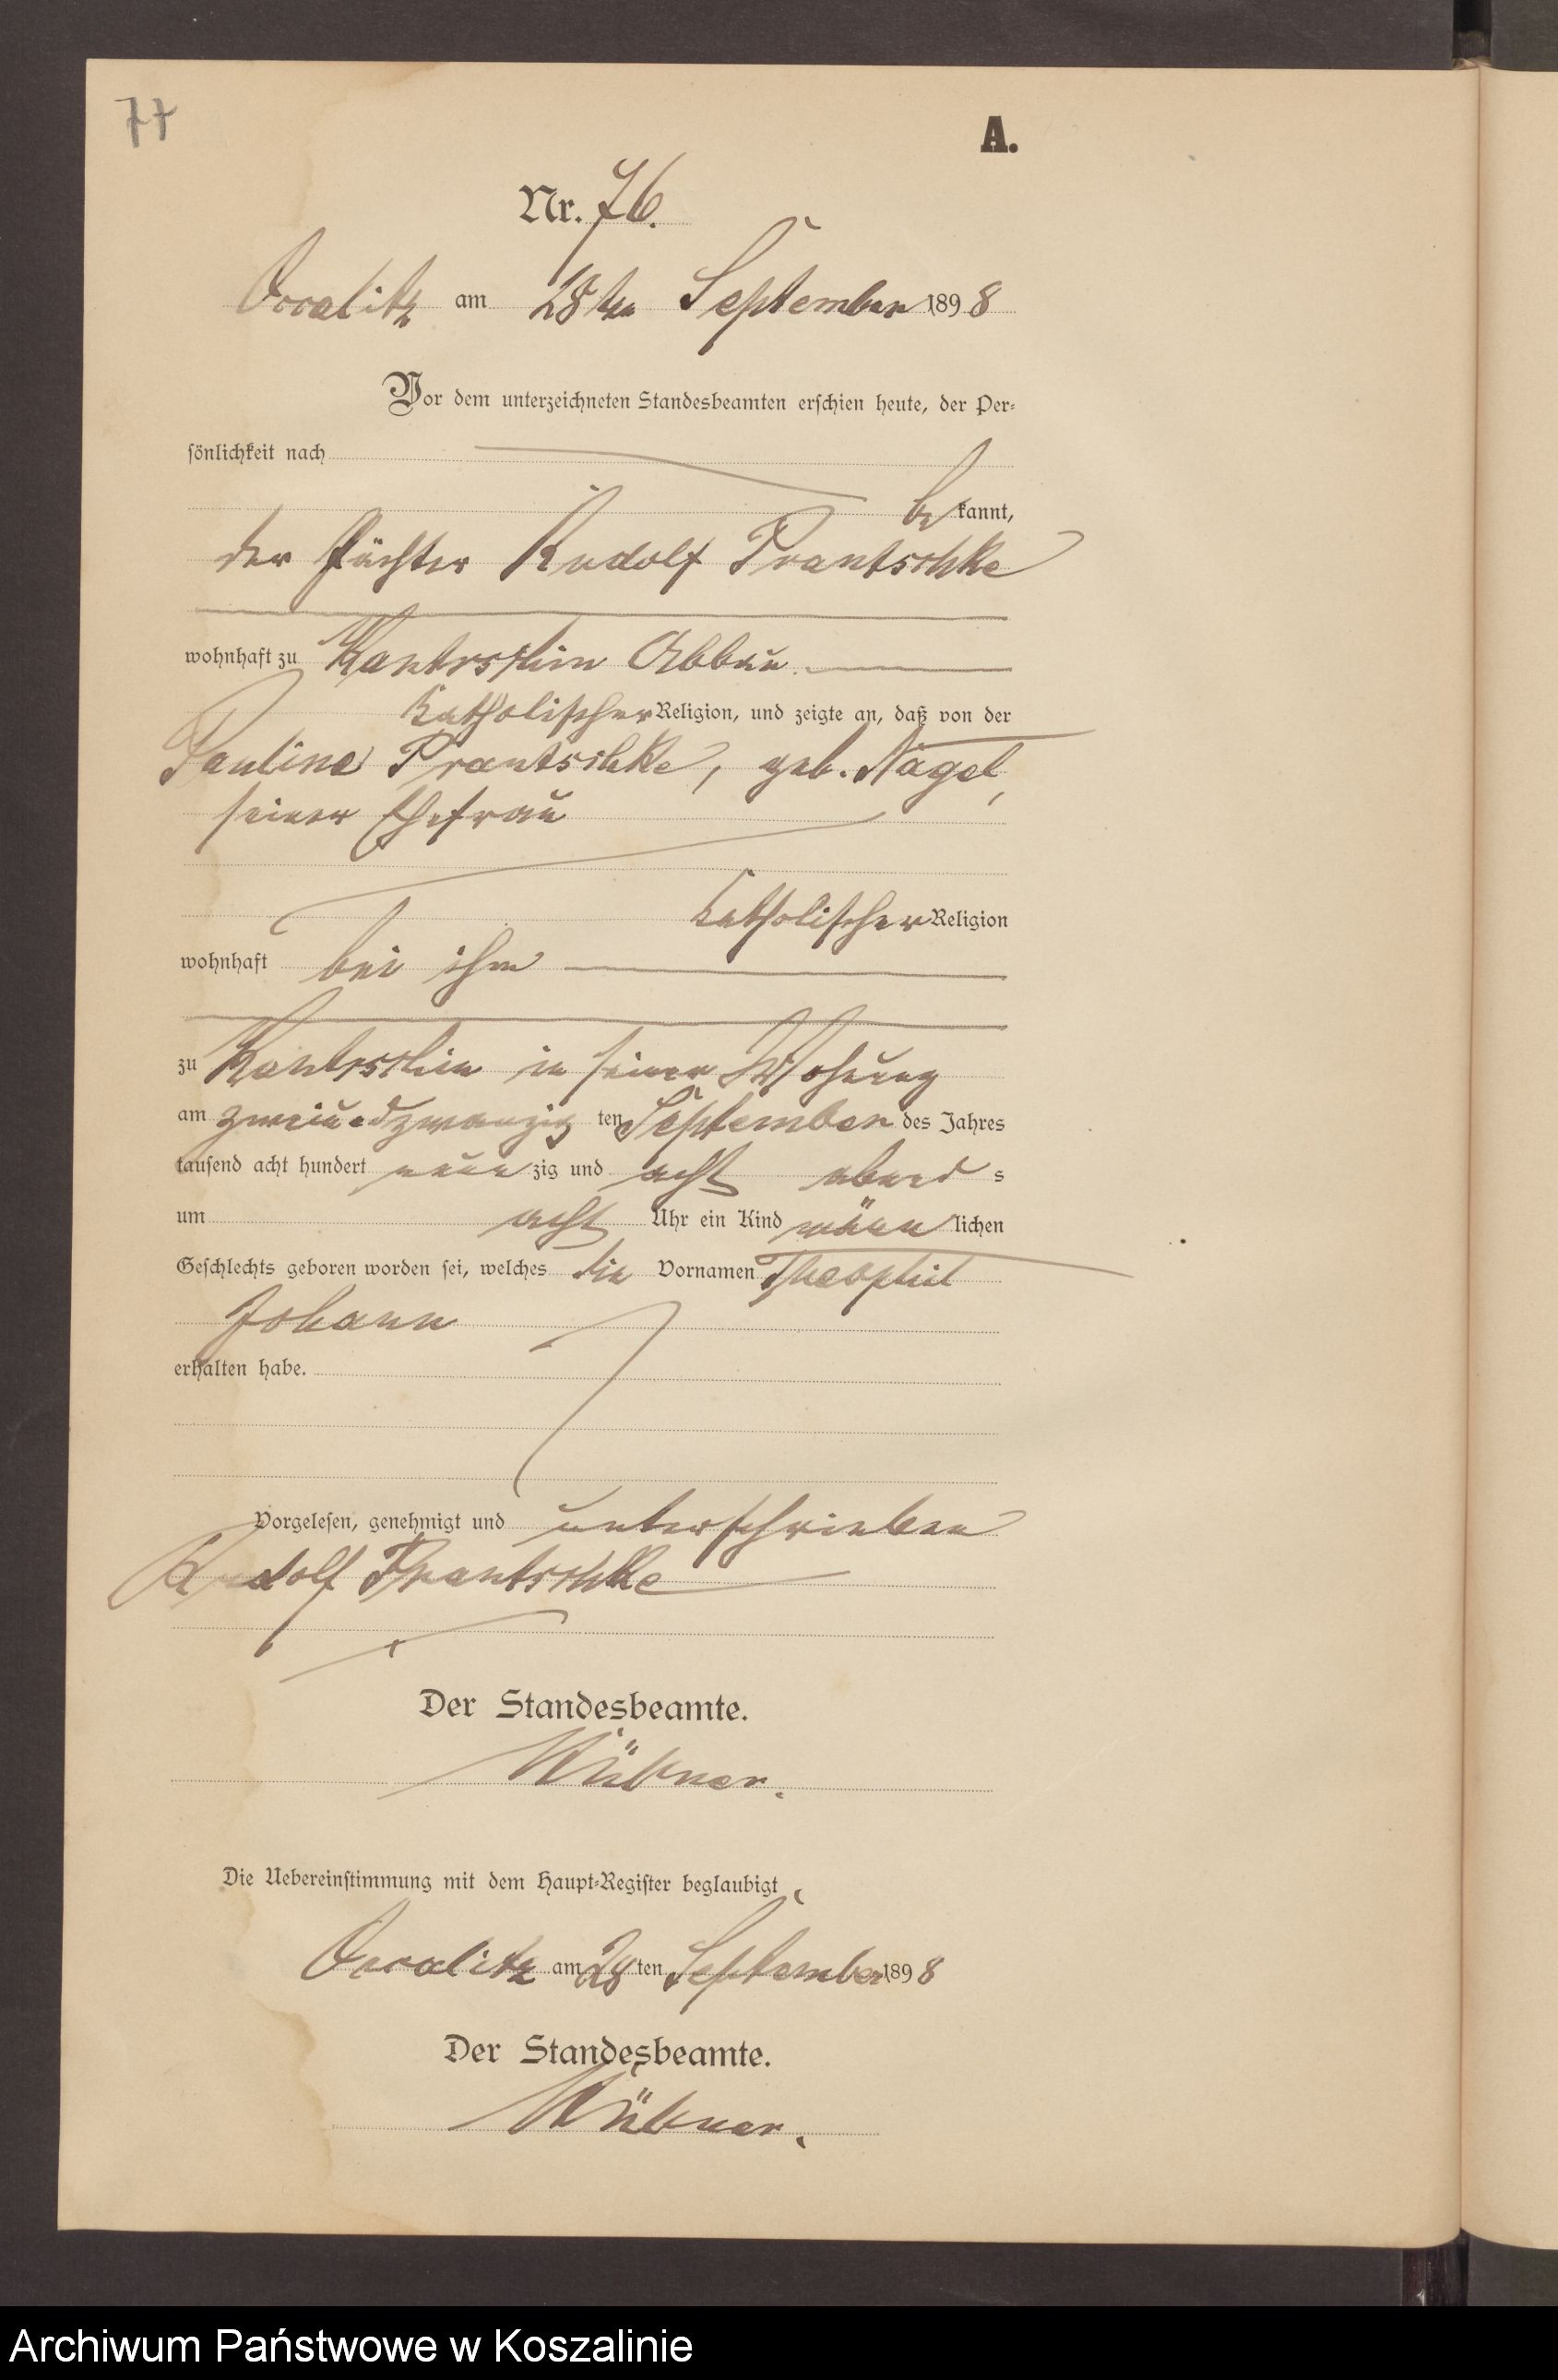 77
A.
Nr. 76.
Occalitz am 28ten September 1898
Vor dem unterzeichneten Standesbeamten erschien heute, der Per-
sönlichkeit nach
be kannt,
der Pächter Rudolf Prantschke
wohnhaft zu Kantrschin Abbau
katholischer Religion, und zeigte an, daß von der
Pauline Prantschke, geb. Nagel,
seiner Ehefrau
katholischer Religion
wohnhaft bei ihm
zu Kantrschin in seiner Wohnung
am zweiundzwanzig ten September des Jahres
tausend acht hundert neun zig und acht abend s
um acht Uhr ein Kind männ lichen
Geschlechts geboren worden sei, welches die Vornamen Theophil
Johann
erhalten habe.
Vorgelesen, genehmigt und unterschrieben
Rudolf Prantschke
Der Standesbeamte.
Die Uebereinstimmung mit dem Haupt-Register beglaubigt
Occalitz am 28 ten September 1898
Der Standesbeamte.
Archiwum Państwowe w Koszalinie